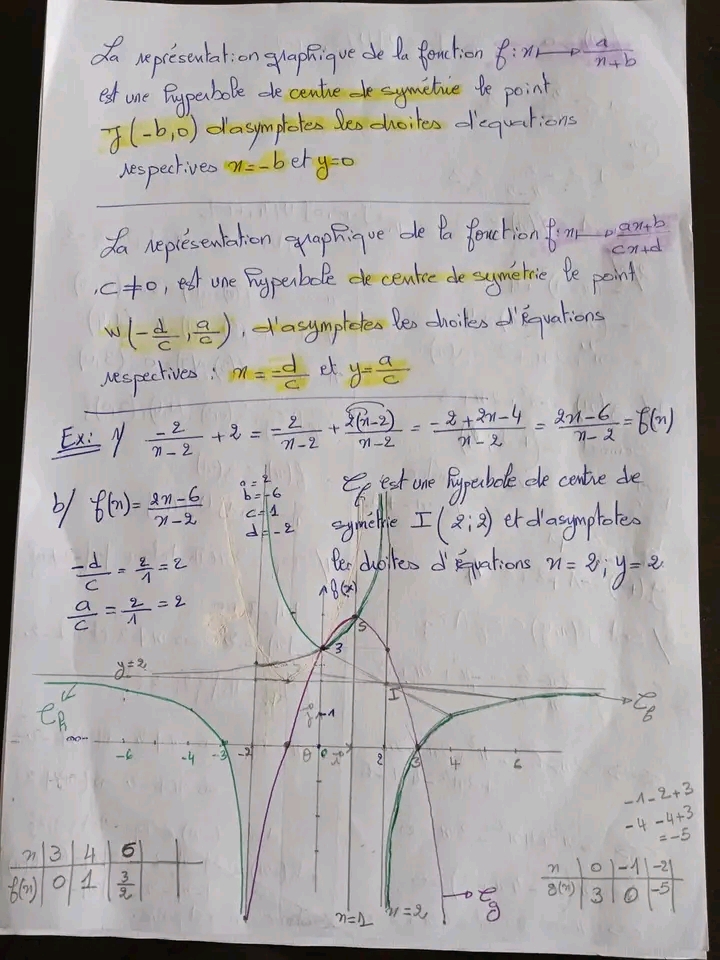 La représentation graphique de la fonction f: x ↦ a/(x+b)
est une hyperbole de centre de symétrie le point
J(-b,0) d'asymptotes les droites d'equations
respectives x=-b et y=0
La représentation graphique de la fonction f: x ↦ (ax+b)/(cx+d)
, c≠0, est une hyperbole de centre de symétrie le point
W(-d/c, a/c), d'asymptotes les droites d'équations
respectives : x = -d/c et y = a/c
Ex: 1/ -2/(x-2) + 2 = -2/(x-2) + 2(x-2)/(x-2) = (-2+2x-4)/(x-2) = (2x-6)/(x-2) = f(x)
b/ f(x) = (2x-6)/(x-2)
a=2
b=-6
c=1
d=-2
-d/c = 2/1 = 2
a/c = 2/1 = 2
ζf est une hyperbole de centre de
symétrie I(2;2) et d'asymptotes
les droites d'équations x=2; y=2
g(x)
S
3
y=2
I
ζh
ζf
j 1
-6 -4 -3 -2 0 0 i 2 3 4 6
-1-2+3
-4-4+3
=-5
x 3 4 6
f(x) 0 1 3/2
x 0 -1 -2
g(x) 3 0 -5
x=1 x=2
ζg